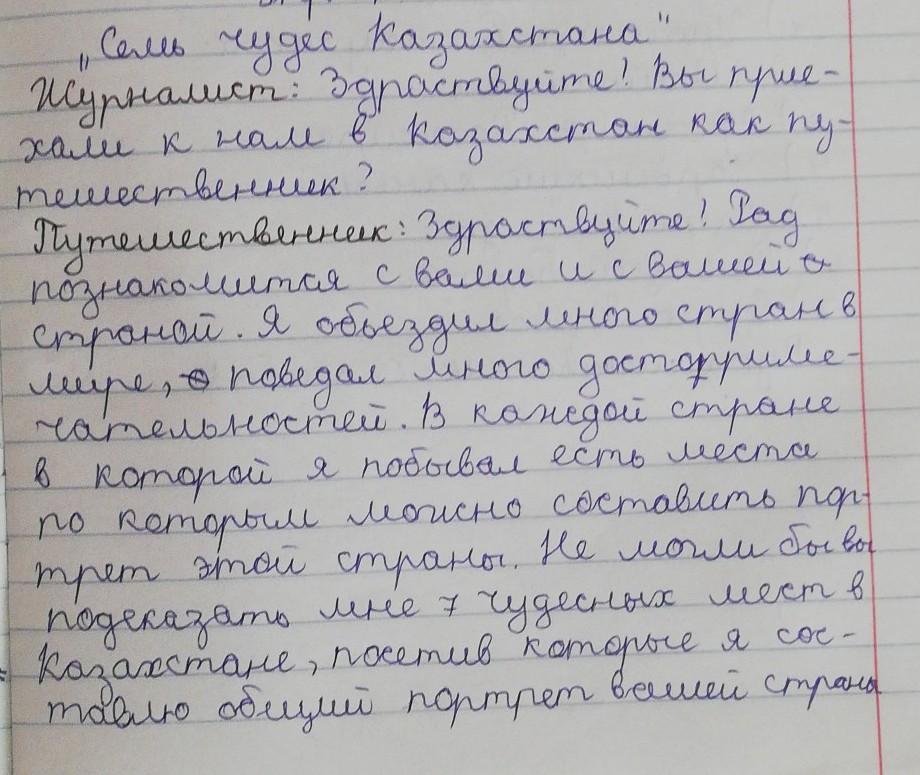 „Семь чудес Казахстана"
Журналист: Здраствуйте! Вы прие-
хали к нам в Казахстан как пу-
тешественник?
Путешественник: Здраствуйте! Рад
познакомится с вами и с вашей
страной. Я объездил много стран в
мире, поведал много достоприме-
чательностей. В каждой стране
в которой я побывал есть места
по которым можно составить пор-
трет этой страны. Не могли бы вы
подсказать мне 7 чудесных мест в
Казахстане, посетив которые я сос-
тавлю общий портрет вашей страны